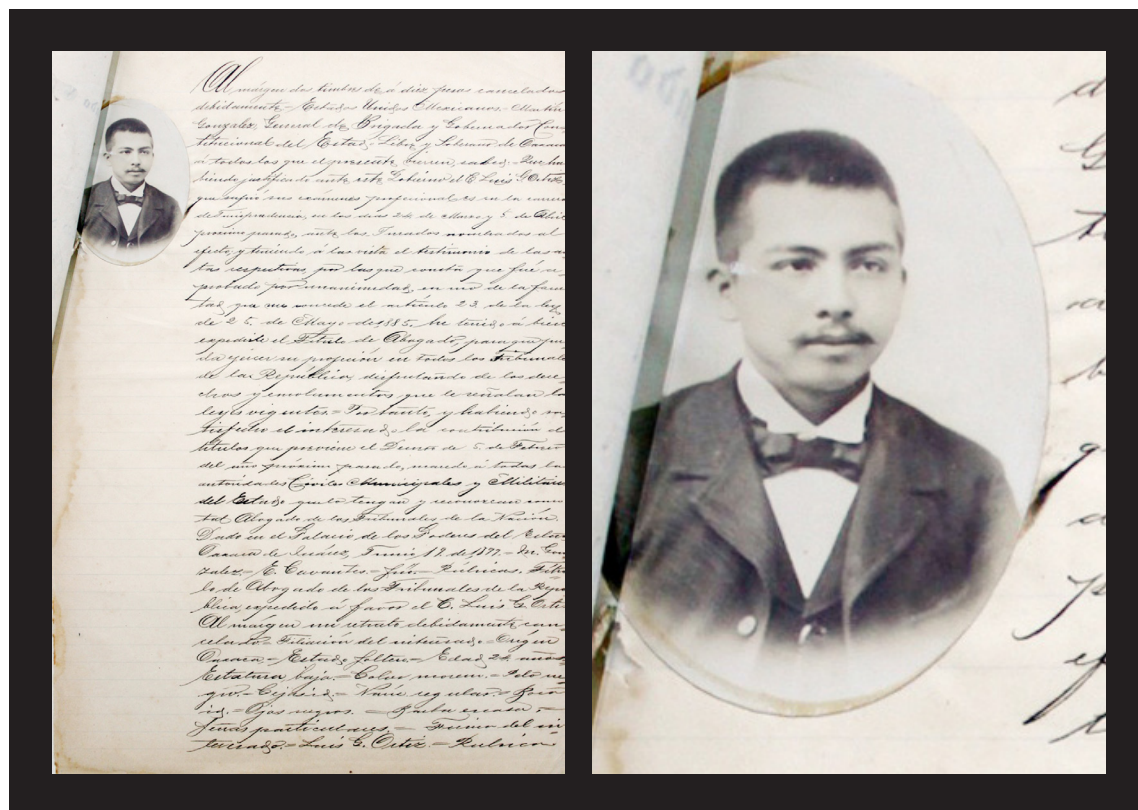 Al márgen dos timbres de á diez pesos cancelados
debidamente.- Estados Unidos Mexicanos.- Martin
Gonzalez, General de Brigada y Gobernador Cons-
titucional del Estado Libre y Soberano de Oaxaca
á todos los que el presente vieren, sabed: Que ha
biendo justificado ante este Gobierno el C. Luis G. Ortiz,
que sufrió sus exámenes profesionales en la carrera
de Jurisprudencia, en los dias 24 de Marzo y 5 de Abril
próximo pasado, ante los Jurados nombrados al
efecto, y teniendo á la vista el testimonio de las ac
tas respectivas, por las que consta que fué a-
probado por unanimidad, en uso de la facul
tad que me concede el artículo 23 de la ley
de 25 de Mayo de 1885, he tenido á bien
expedirle el Título de Abogado, para que pue
da ejercer su profesión en todos los Tribunales
de la República, disfrutando de los dere-
chos y emolumentos que le señalan las
leyes vigentes.= Por tanto, y habiendo sa-
tisfecho el interesado la contribución de
títulos que previene el Decreto de 5 de Febrero
del año próximo pasado, mando á todas las
autoridades Civiles Municipales y Militares
del Estado que lo tengan y reconozcan como
tal Abogado de los Tribunales de la Nación.
Dado en el Palacio de los Poderes del Estado
Oaxaca de Juárez, Junio 18 de 1897.= M. Gon-
zalez.= E. Cervantes.= Srio.= Rúbricas. Títu
lo de Abogado de los Tribunales de la Repú
blica, expedido á favor el C. Luis G. Ortiz
Al margen un retrato debidamente can-
celado.= Filiación del interesado.= Orígen
Oaxaca.= Estado soltero.= Edad 24 años
Estatura baja.= Color moreno.= Pelo ne-
gro.= Cejas id.= Nariz regular.=
id.= Ojos negros.= Barba escasa.=
Señas particulares, = Firma del in
teresado.= Luis G. Ortiz.= Rubrica